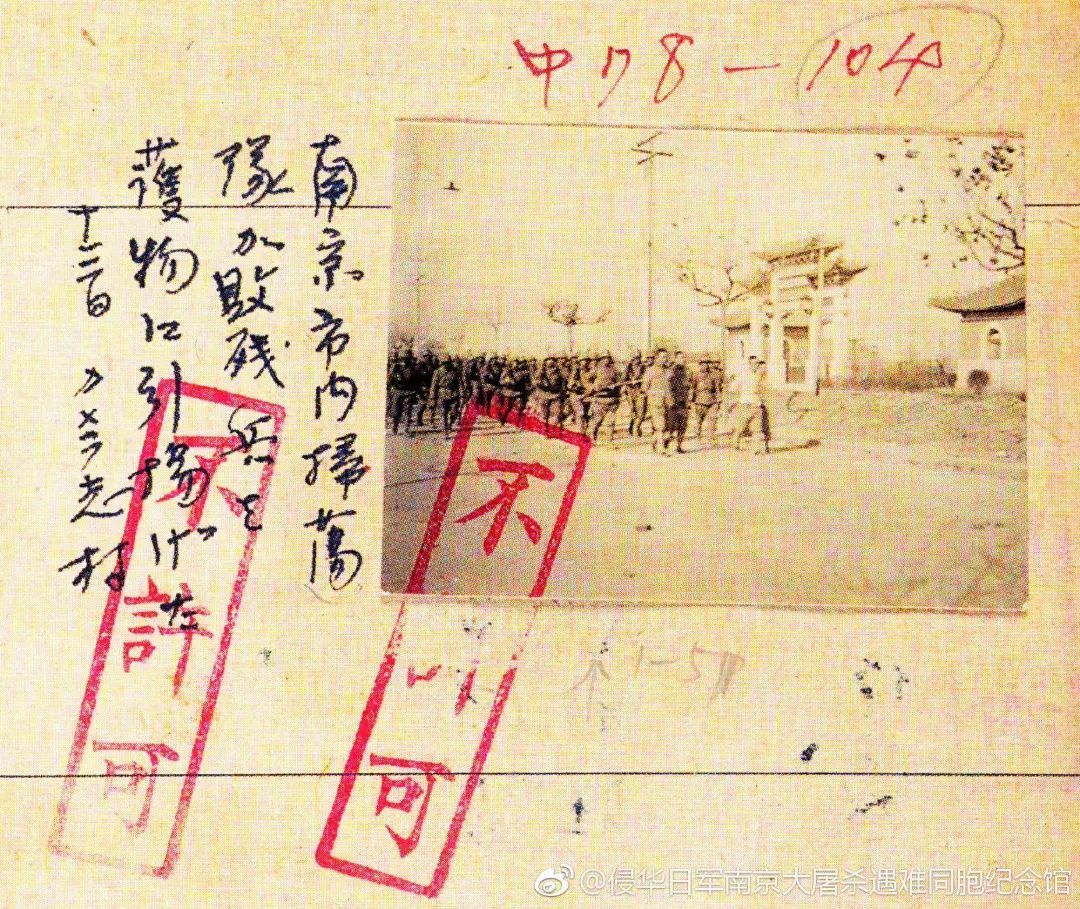 中178-104
南京市内掃蕩
隊が敗残兵と
護物に引揚げた
十二日 志村
不許可
不 可
1-5
@侵华日军南京大屠杀遇难同胞纪念馆